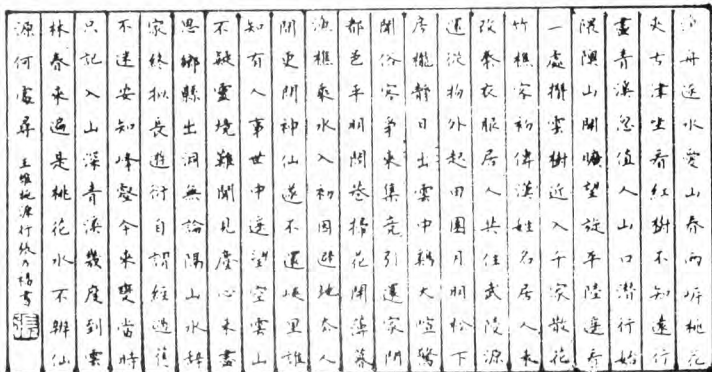 漁舟逐水愛山春兩岸桃花
夾古津坐看紅樹不知遠行
盡青溪忽值人山口潛行始
隈隩山開曠望旋平陸遙看
一處攢雲樹近入千家散花
竹樵客初傳漢姓名居人未
改秦衣服居人共住武陵源
還從物外起田園月明松下
房櫳靜日出雲中雞犬喧驚
聞俗客爭來集競引還家問
都邑平明閭巷掃花開薄暮
漁樵乘水入初因避地去人
間更問神仙遂不還峽里誰
知有人事世中遙望空雲山
不疑靈境難聞見塵心未盡
思鄉縣出洞無論隔山水辭
家終擬長遊衍自謂經過舊
不迷安知峰壑今來變當時
只記入山深青溪幾度到雲
林春來遍是桃花水不辨仙
源何處尋 王維桃源行 書